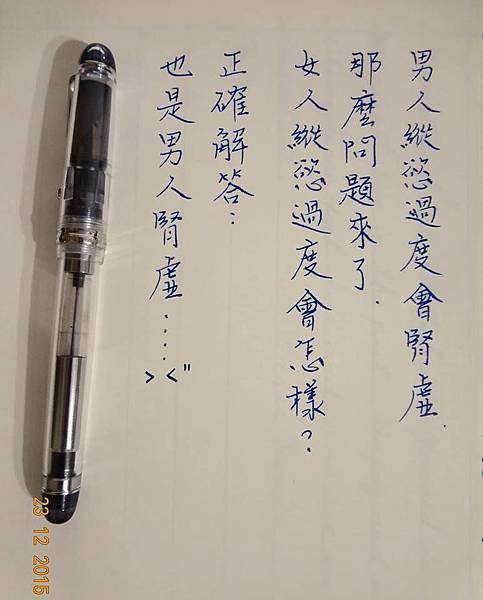 男人縱慾過度會腎虛.
那麼問題來了.
女人縱慾過度會怎樣？
正確解答：
也是男人腎虛．．．．．
> <"
23 12 2015